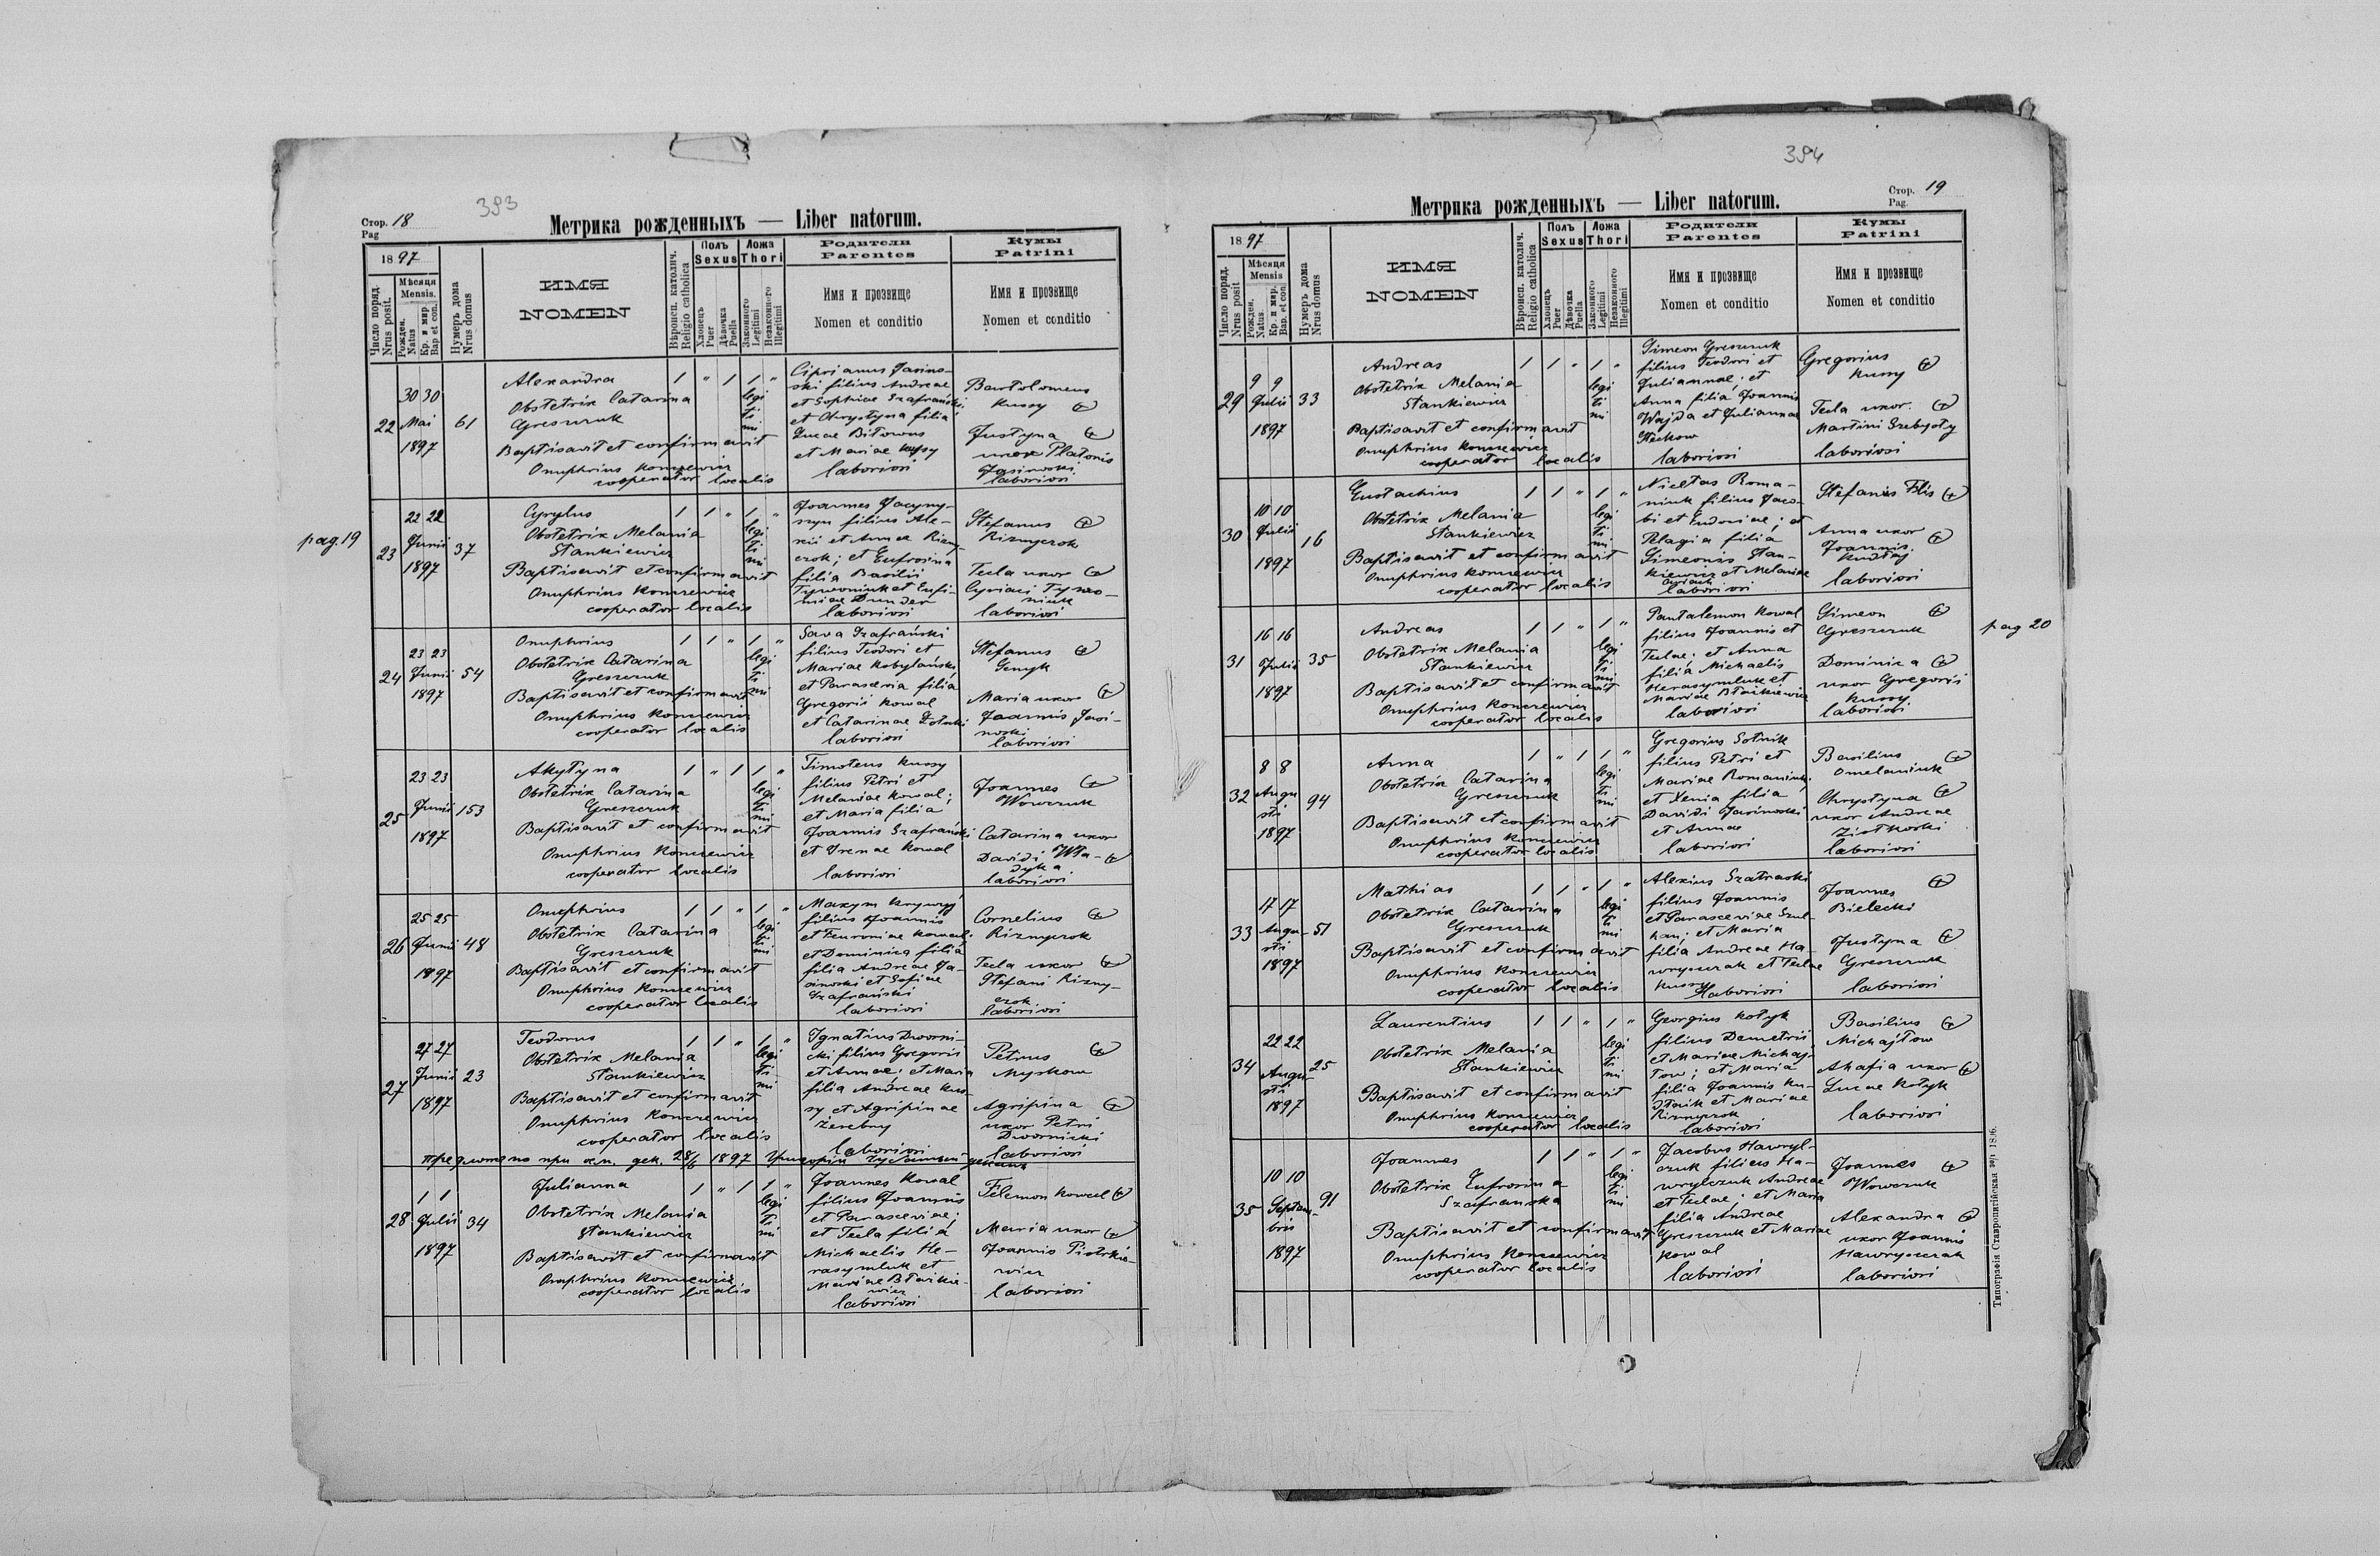 393
Стор. 18
Pag
Метрика рожденныхъ — Liber natorum.
1897
Число поряд.
Nrus posit.
Мѣсяця
Mensis.
Рожден.
Natus
Кр. и мир.
Bap et con.
Нумеръ дома
Nrus domus
ИМЯ
NOMEN
Вѣроисп. католич.
Religio catholica
Полъ
Sexus
Хлопецъ
Puer
Дѣвочка
Puella
Ложа
Thori
Законного
Legitimi
Незаконного
Illegitimi
Родители
Parentes
Имя и прозвище
Nomen et conditio
Кумы
Patrini
Имя и прозвище
Nomen et conditio
22
30 30
Mai
1897
61
Alexandra
Obstetrix Catarina
Greszczuk
Baptisavit et confirmavit
Onuphrius Konczewicz
cooperator localis
1 " 1 1 "
legi
ti
mi
Ciprianus Jasino-
ski filius Andreae
et Sophiae Szafrański
et Chrystyna filia
Lucae Bitowus
et Mariae Kussy
laboriosi
Bartolomeus
Kussy
Justyna
uxor Platonis
Jasinoski
laboriosi
pag. 19
23
22 22
Junii
1897
37
Cyrylus
Obstetrix Melania
Stankiewicz
Baptisavit et confirmavit
Onuphrius Konczewicz
cooperator localis
1 1 " 1 "
legi
ti
mi
Joannes Jacyny-
szyn filius Ale-
xii et Annae Rizny-
czok; et Eufrosina
filia Basilii
Tywoniuk et Eufi-
miae Dunder
laboriosi
Stefanus
Riznyczok
Tecla uxor
Cyriaci Tywo-
niuk
laboriosi
24
23 23
Junii
1897
54
Onuphrius
Obstetrix Catarina
Greszczuk
Baptisavit et confirmavit
Onuphrius Konczewicz
cooperator localis
1 1 " 1 "
legi
ti
mi
Sava Szafrański
filius Teodori et
Mariae Kobylański
et Parascevia filia
Gregorii Kowal
et Catarinae
laboriosi
Stefanus
Genyk
Maria uxor
Joannis Jasi-
noski
laboriosi
25
23 23
Junii
1897
153
Akylyna
Obstetrix Catarina
Greszczuk
Baptisavit et confirmavit
Onuphrius Konczewicz
cooperator localis
1 " 1 1 "
legi
ti
mi
Timoteus Kussy
filius Petri et
Melaniae Kowal;
et Maria filia
Joannis Szafrański
et Irenae Kowal
laboriosi
Joannes
Wowczuk
Catarina uxor
Davidi Wła-
dyka
laboriosi
26
25 25
Junii
1897
48
Onuphrius
Obstetrix Catarina
Greszczuk
Baptisavit et confirmavit
Onuphrius Konczewicz
cooperator localis
1 1 " 1 "
legi
ti
mi
Maxym Krywyj
filius Joannis
et Fewroniae Kowal;
et Dominica filia
filia Andreae Ja-
sinoski et Sofiae
Szafrański
laboriosi
Cornelius
Riznyczok
Tecla uxor
Stefani Rizny-
czok
laboriosi
27
27 27
Junii
1897
23
Teodorus
Obstetrix Melania
Stankiewicz
Baptisavit et confirmavit
Onuphrius Konczewicz
cooperator localis
1 1 " 1 "
legi
ti
mi
Ignatius Dworni-
cki filius Gregorii
et Annae; et Maria
filia Andreae Kus-
sy et Agripinae
Zerebny
laboriosi
Petrus
Myskow
Agripina
uxor Petri
Dwornicki
laboriosi
Предложено при дек. 28/6 1897
28
1 1
Julii
1897
34
Julianna
Obstetrix Melania
Stankiewicz
Baptisavit et confirmavit
Onuphrius Konczewicz
cooperator localis
1 " 1 1 "
legi
ti
mi
Joannes Kowal
filius Joannis
et Parasceviae;
et Tecla filia
Michaelis He-
rasymluk et
Mariae Błaikie-
wicz
laboriosi
Filemon Kowal
Maria uxor
Joannis Piotrkie-
wicz
laboriosi
394
Стор. 19
Pag.
Метрика рожденныхъ — Liber natorum.
1897
Число поряд.
Nrus posit
Мѣсяця
Mensis
Рожден.
Natus.
Кр. и мир.
Bap. et con.
Нумеръ дома
Nrus domus
ИМЯ
NOMEN
Вѣроисп. католич.
Religio catholica
Полъ
Sexus
Хлопецъ
Puer
Дѣвочка
Puella
Ложа
Thori
Законного
Legitimi
Незаконного
Illegitimi
Родители
Parentes
Имя и прозвище
Nomen et conditio
Кумы
Patrini
Имя и прозвище
Nomen et conditio
29
9 9
Julii
1897
33
Andreas
Obstetrix Melania
Stankiewicz
Baptisavit et confirmavit
Onuphrius Konczewicz
cooperator localis
1 1 " 1 "
legi
ti
mi
Simeon Greszczuk
filius Teodori et
Juliannae; et
Anna filia Joannis
Wajda et Juliannae
Steckow
laboriosi
Gregorius
Kussy
Tecla uxor
Martini Szebysty
laboriosi
30
10 10
Julii
1897
16
Eustachius
Obstetrix Melania
Stankiewicz
Baptisavit et confirmavit
Onuphrius Konczewicz
cooperator localis
1 1 " 1 "
legi
ti
mi
Nicetas Roma-
niuk filius Jaco-
bi et Eudoxiae; et
Pelagia filia
Simeonis Stan-
kiewicz et Melaniae
laboriosi
Stefanus Flis
Anna uxor
Joannis
Kudłaj
laboriosi
31
16 16
Julii
1897
35
Andreas
Obstetrix Melania
Stankiewicz
Baptisavit et confirmavit
Onuphrius Konczewicz
cooperator localis
1 1 " 1 "
legi
ti
mi
Pantalemon Kowal
filius Joannis et
Teclae; et Anna
filia Michaelis
Herasymluk et
Mariae Błaikiewicz
laboriosi
Simeon
Greszczuk
Dominica
uxor Gregorii
Kussy
laboriosi
pag 20
32
8 8
Augu
sti
1897
94
Anna
Obstetrix Catarina
Greszczuk
Baptisavit et confirmavit
Onuphrius Konczewicz
cooperator localis
1 " 1 1 "
legi
ti
mi
Gregorius Sotnik
filius Petri et
Mariae Romaniuk;
et Xenia filia
Davidi Jasinoski
et Annae
laboriosi
Basilius
Omelaniuk
Chrystyna
uxor Andreae
Ziółkoski
laboriosi
33
17 17
Augu-
sti
1897
51
Mathias
Obstetrix Catarina
Greszczuk
Baptisavit et confirmavit
Onuphrius Konczewicz
cooperator localis
1 1 " 1 "
legi
ti
mi
Alexius Szatraski
filius Joannis
et Parasceviae Szul-
han; et Maria
filia Andreae Ha-
wryszczak et Teclae
Kussy
laboriosi
Joannes
Bielecki
Justyna
Greszczuk
laboriosi
34
22 22
Augu-
sti
1897
25
Laurentius
Obstetrix Melania
Stankiewicz
Baptisavit et confirmavit
Onuphrius Konczewicz
cooperator localis
1 1 " 1 "
legi
ti
mi
Georgius Kotyk
filius Demetrii
et Mariae Michaj-
łow; et Maria
filia Joannis Ku-
et Mariae
Riznyczok
laboriosi
Basilius
Michajłow
Ahafia uxor
Lucae Kotyk
laboriosi
35
10 10
Septem-
bris
1897
91
Joannes
Obstetrix Eufrosina
Szafranska
Baptisavit et confirmavit
Onuphrius Konczewicz
cooperator localis
1 1 " 1 "
legi
ti
mi
Jacobus Hawryl-
czuk filius Ha-
wrylczuk Andreae
et Teclae; et Maria
filia Andreae
Greszczuk et Mariae
Kowal
laboriosi
Joannes
Wowczuk
Alexandra
uxor Joannis
Hawryszczak
laboriosi
Типографія Ставропигійская